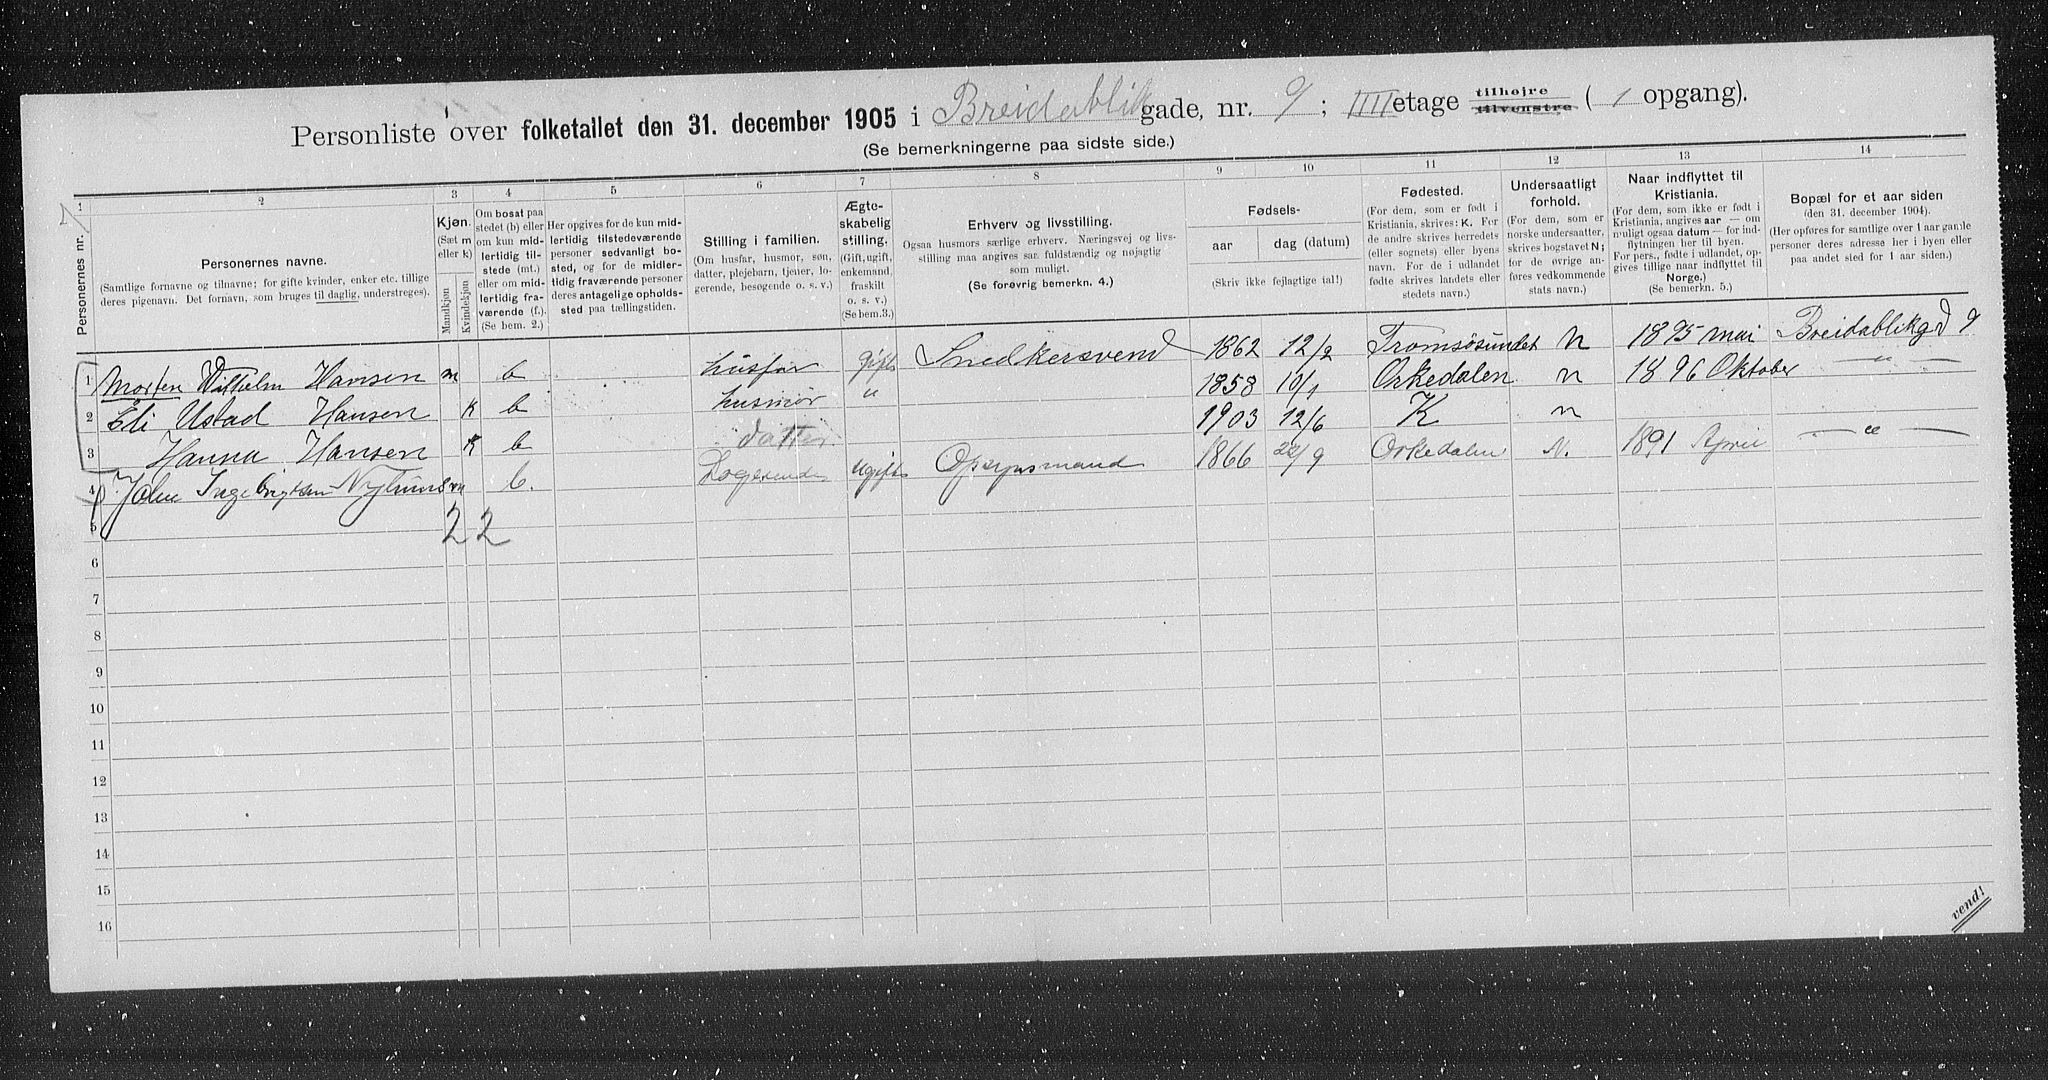 Personliste over folketallet den 31. december 1905 i Breidablik gade, nr. 9; IIII etage tilhøjre tilvenstre ( 1 opgang).
(Se bemerkningerne paa sidste side.)
1 2 3 4 5 6 7 8 9 10 11 12 13 14
Personernes nr.
Personernes navne.
(Samtlige fornavne og tilnavne; for gifte kvinder, enker etc. tillige
deres pigenavn. Det fornavn, som bruges til daglig, understreges).
Kjøn.
(Sæt m
eller k)
Mandkjøn
Kvindekjøn
Om bosat paa
stedet (b) eller
om kun mid-
lertidig til-
stede (mt.)
eller om mid-
lertidig fra-
værende (f.).
(Se bem. 2.)
Her opgives for de kun mid-
lertidig tilstedeværende
personer sedvanligt bo-
sted, og for de midler-
tidig fraværende personer
deres antagelige opholds-
sted paa tællingstiden.
Stilling i familien.
(Om husfar, husmor, søn,
datter, plejebarn, tjener, lo-
gerende, besøgende o. s. v.)
Ægte-
skabelig
stilling.
(Gift, ugift,
enkemand,
fraskilt
o. s. v.)
(Se bem.3.)
Erhverv og livsstilling.
Ogsaa husmors særlige erhverv. Næringsvej og livs-
stilling maa angives saa fuldstændig og nøjagtig
som muligt.
(Se forøvrig bemerkn. 4.)
Fødsels-
aar dag (datum)
(Skriv ikke fejlagtige tal!)
Fødested.
(For dem, som er født i
Kristiania, skrives: K. For
de andre skrives herredets
(eller sognets) eller byens
navn. For de i udlandet
fødte skrives landets eller
stedets navn.)
Undersaatligt
forhold.
(For dem, som er
norske undersaatter,
skrives bogstavet N;
for de øvrige an-
føres vedkommende
stats navn.)
Naar indflyttet til
Kristiania.
(For dem, som ikke er født i
Kristiania, angives aar — om
muligt ogsaa datum — for ind-
flytningen her til byen.
For pers., fødte i udlandet, op-
gives tillige naar indflyttet til
Norge.)
(Se bemerkn. 5.)
Bopæl for et aar siden
(den 31. december 1904).
(Her opføres for samtlige over 1 aar gamle
personer deres adresse her i byen eller
paa andet sted for 1 aar siden.)
1 Morten Wilhelm Hansen m b husfar gift Snedkersvend 1862 12/2 Tromsøsundet N 1895 mai Breidablikgd 9
2 Eli Ustad Hansen K b husmor " 1858 10/1 Orkedalen N 1896 Oktober — " —
3 Hanna Hansen K b datter 1903 12/6 K N
4 John Ingebrigtsen m b. Logerende ugift Opsynsmand 1866 22/9 Orkedalen N. 1891 April — " —
5 2 2
6
7
8
9
10
11
12
13
14
15
16
vend!